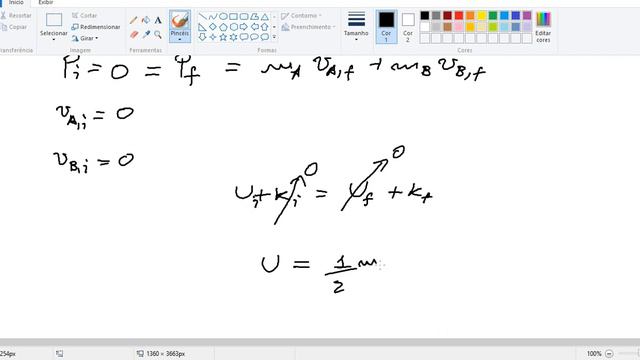 Início Exibir
Recortar Cortar
Copiar Redimensionar
Girar
Selecionar
Pincéis
Formas
Contorno
Preenchimento
Tamanho
Cor 1
Cor 2
Editar cores
Transferência Imagem Ferramentas Formas Cores
P_i = 0 = P_f = m_A v_{A,f} + m_B v_{B,f}
v_{A,i} = 0
v_{B,i} = 0
0 0
U_i + K_i = U_f + K_f
U = 1/2 m
254px 1360 × 3663px 100%